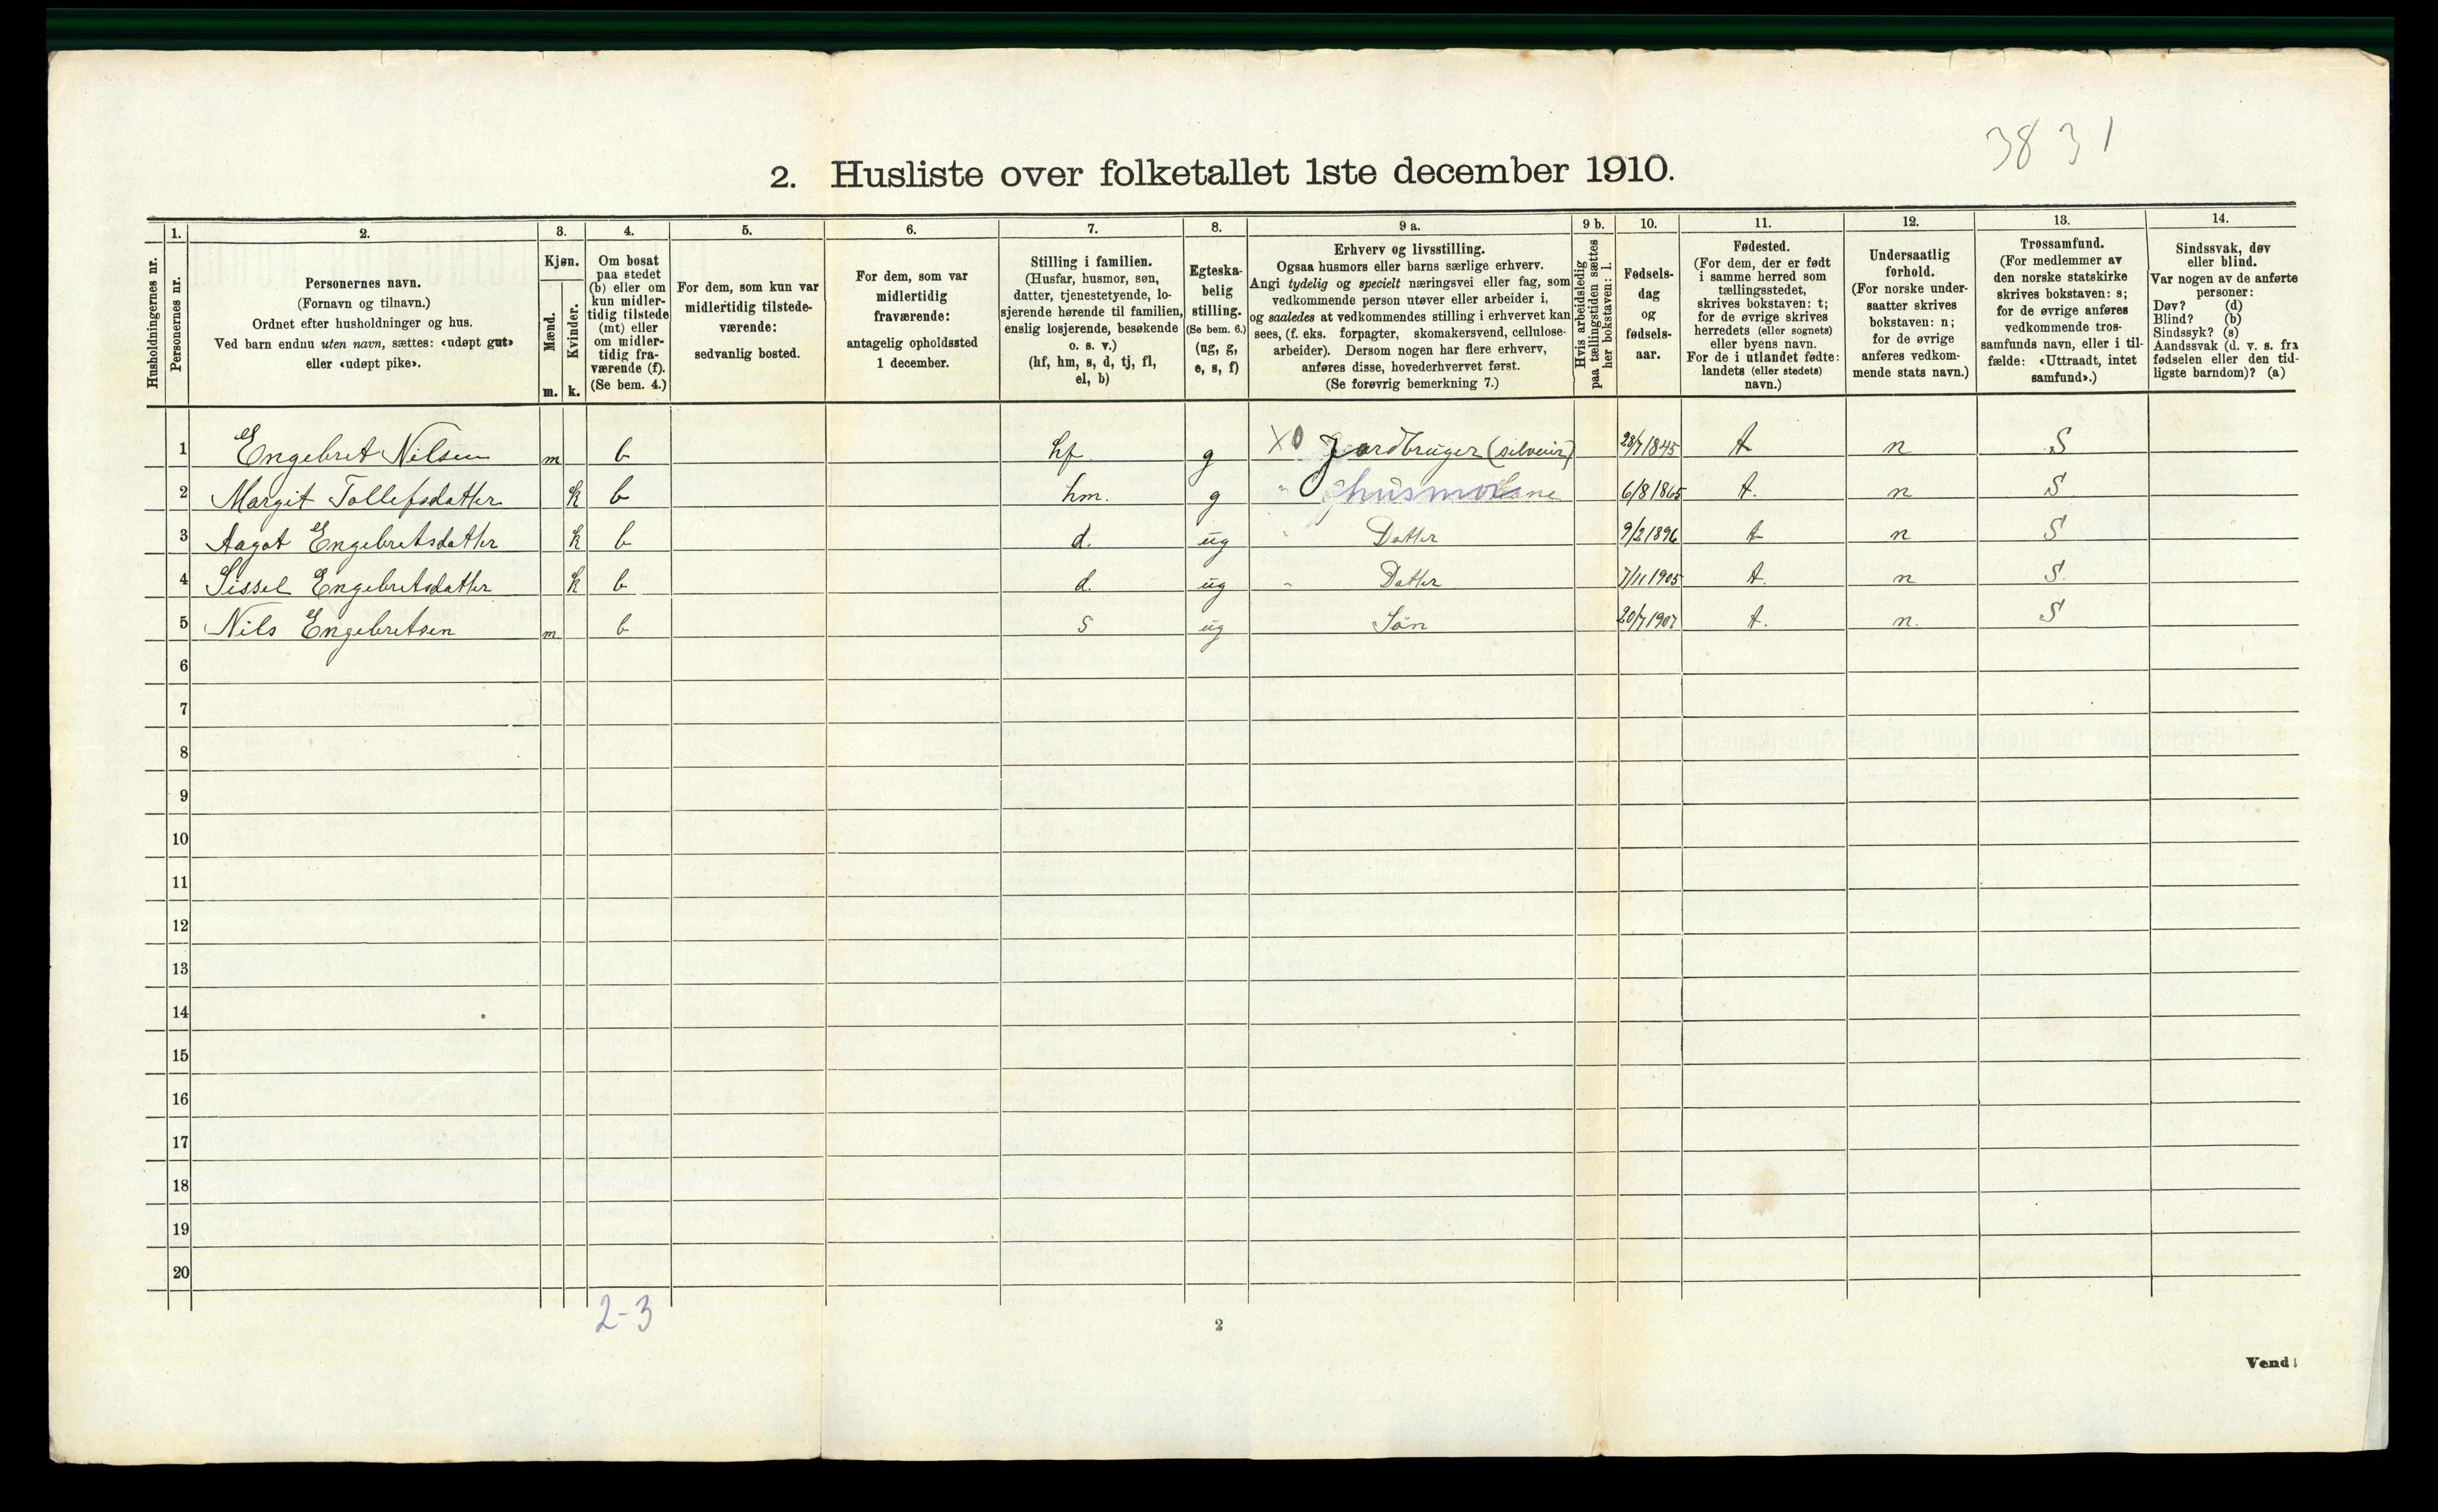 3831
2. Husliste over folketallet 1ste december 1910.
Husholdningernes nr.
1.
Personernes nr.
2.
Personernes navn.
(Fornavn og tilnavn.)
Ordnet efter husholdninger og hus.
Ved barn endnu uten navn, sættes: «udøpt gut»
eller «udøpt pike».
3.
Kjøn.
Mænd.
Kvinder.
m. k.
4.
Om bosat
paa stedet
(b) eller om
kun midler-
tidig tilstede
(mt) eller
om midler-
tidig fra-
værende (f).
(Se bem. 4.)
5.
For dem, som kun var
midlertidig tilstede-
værende:
sedvanlig bosted.
6.
For dem, som var
midlertidig
fraværende:
antagelig opholdssted
1 december.
7.
Stilling i familien.
(Husfar, husmor, søn,
datter, tjenestetyende, lo-
sjerende hørende til familien,
enslig losjerende, besøkende
o. s. v.)
(hf, hm, s, d, tj, fl,
el, b)
8.
Egteska-
belig
stilling.
(Se bem. 6.)
(ug, g,
e, s, f)
9 a.
Erhverv og livsstilling.
Ogsaa husmors eller barns særlige erhverv.
Angi tydelig og specielt næringsvei eller fag, som
vedkommende person utøver eller arbeider i,
og saaledes at vedkommendes stilling i erhvervet kan
sees, (f. eks. forpagter, skomakersvend, cellulose-
arbeider). Dersom nogen har flere erhverv,
anføres disse, hovederhvervet først.
(Se forøvrig bemerkning 7.)
9 b.
Hvis arbeidsledig
paa tællingstiden sættes
her bokstaven: l.
10.
Fødsels-
dag
og
fødsels-
aar.
11.
Fødested.
(For dem, der er født
i samme herred som
tællingsstedet,
skrives bokstaven: t;
for de øvrige skrives
herredets (eller sognets)
eller byens navn.
For de i utlandet fødte:
landets (eller stedets)
navn.)
12.
Undersaatlig
forhold.
(For norske under-
saatter skrives
bokstaven: n;
for de øvrige
anføres vedkom-
mende stats navn.)
13.
Trossamfund.
(For medlemmer av
den norske statskirke
skrives bokstaven: s;
for de øvrige anføres
vedkommende tros-
samfunds navn, eller i til-
fælde: «Uttraadt, intet
samfund».)
14.
Sindssvak, døv
eller blind.
Var nogen av de anførte
personer:
Døv? (d)
Blind? (b)
Sindssyk? (s)
Aandssvak (d. v. s. fra
fødselen eller den tid-
ligste barndom)? (a)
1 Engebret Nilsen m b hf g X0 Jordbruger (selveier) 28/7 1845 t n S
2 Margit Tollefsdatter k b hm. g " husmor 6/8 1865 t. n S
3 Aagot Engebretsdatter k b d. ug " Datter 9/2 1896 t n S
4 Sissel Engebretsdatter k b d. ug " Datter 7/11 1905 t. n S.
5 Nils Engebretsen m b s ug Sön 20/7 1907 t. n. S
6
7
8
9
10
11
12
13
14
15
16
17
18
19
20
2-3
2
Vend!